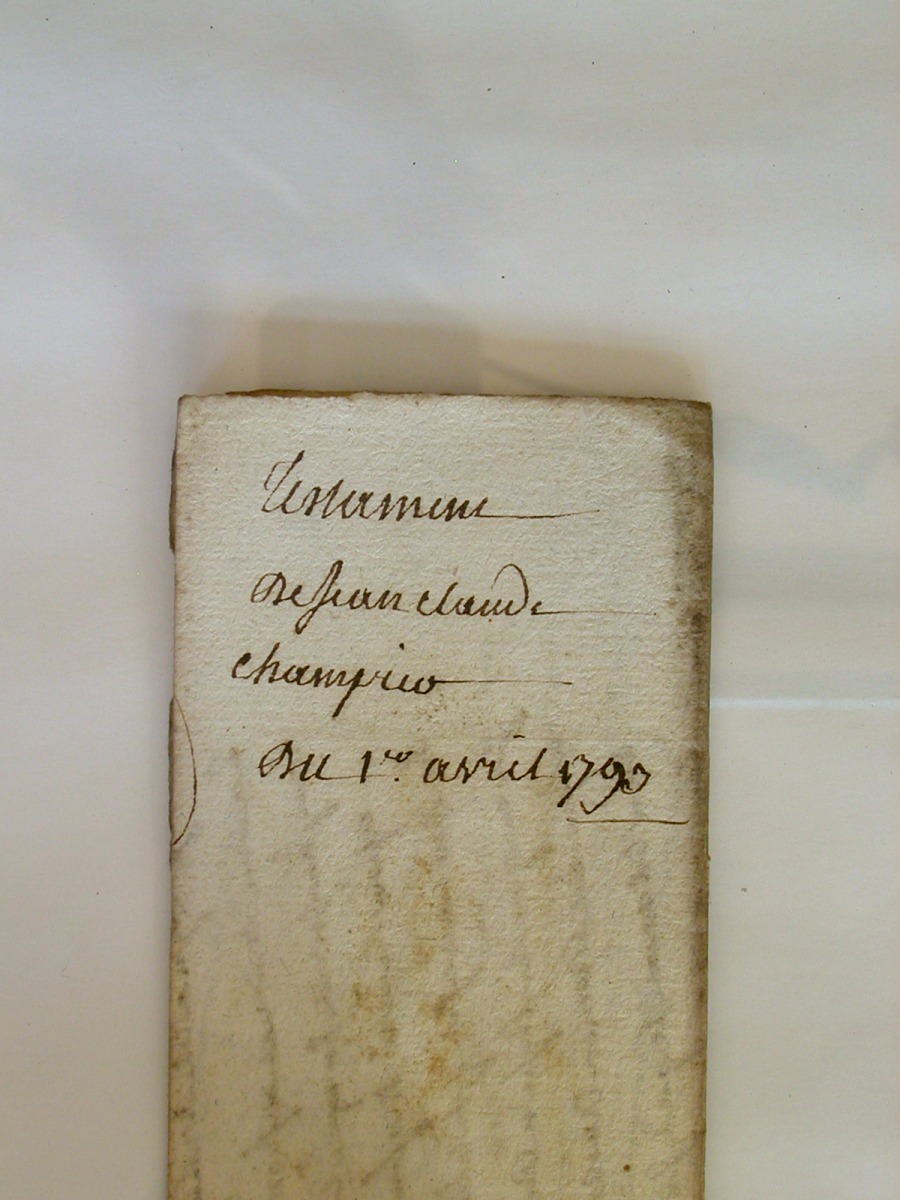 Testament
De Jean claude
champieo
Du 1er. avril 1793